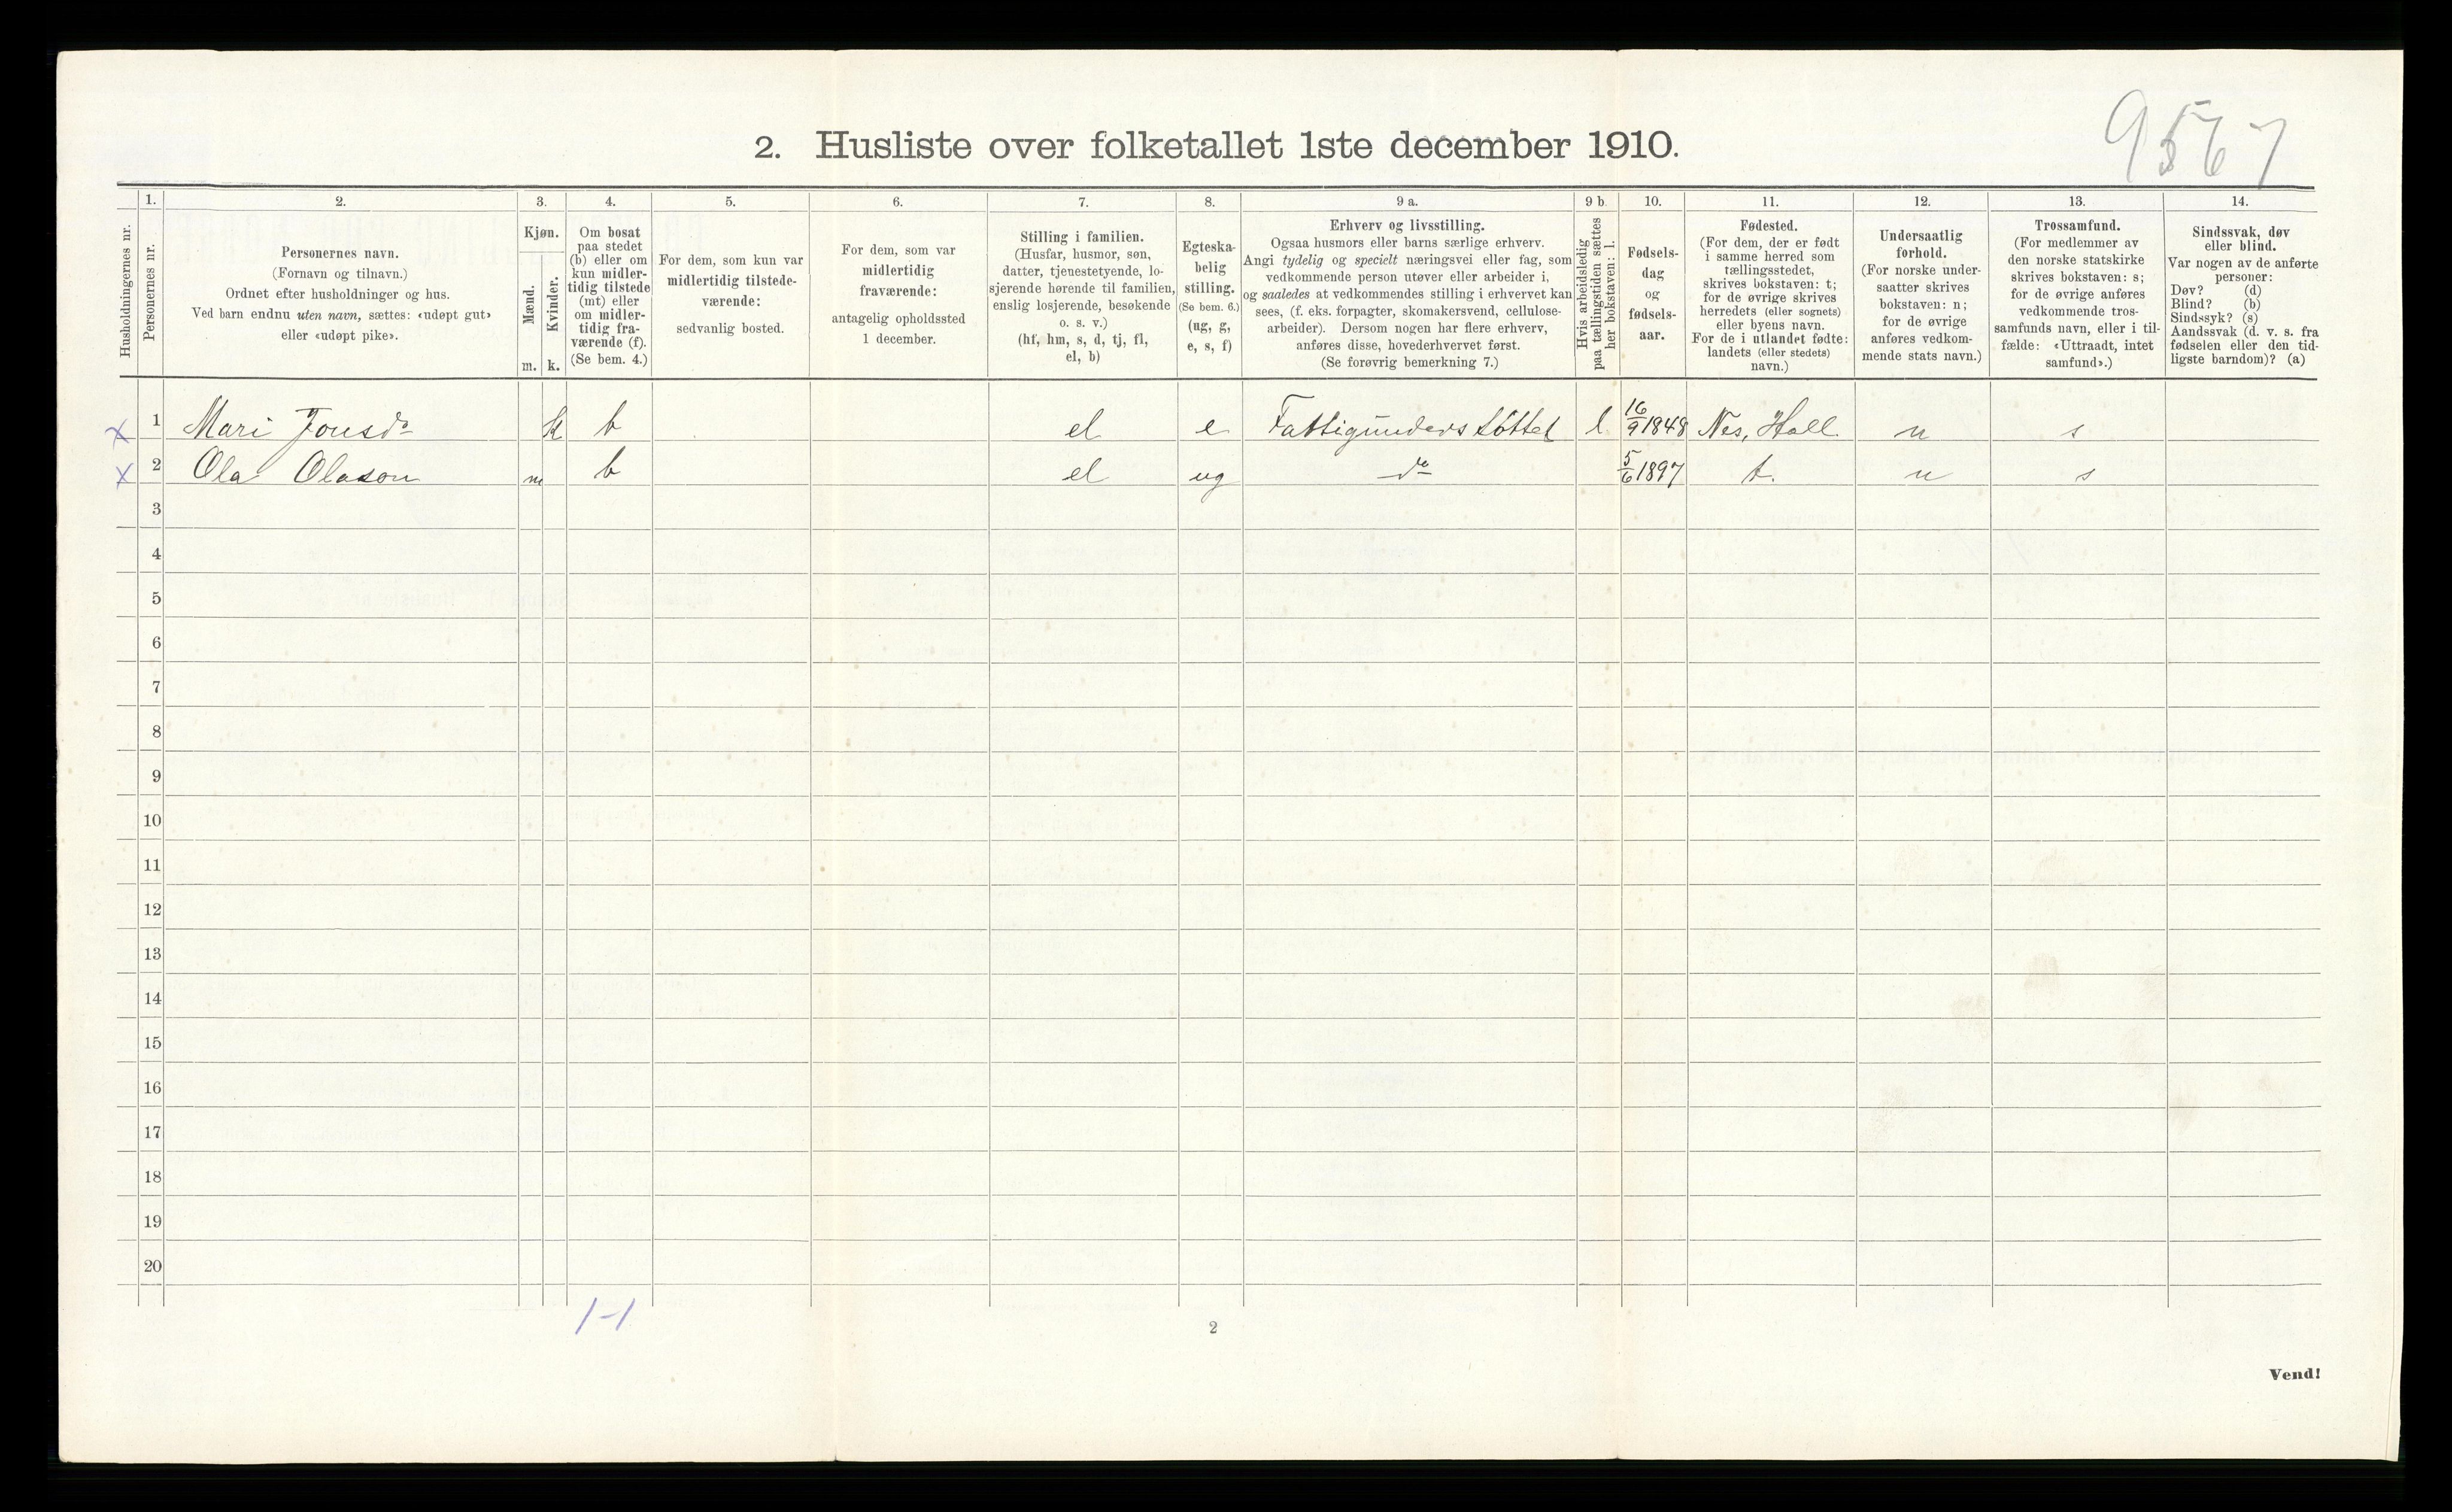 9567
2. Husliste over folketallet 1ste december 1910.
Husholdningernes nr.
1. Personernes nr.
2. Personernes navn.
(Fornavn og tilnavn.)
Ordnet efter husholdninger og hus.
Ved barn endnu uten navn, sættes: «udøpt gut»
eller «udøpt pike».
3. Kjøn.
Mænd. m.
Kvinder. k.
4. Om bosat
paa stedet
(b) eller om
kun midler-
tidig tilstede
(mt) eller
om midler-
tidig fra-
værende (f).
(Se bem. 4.)
5. For dem, som kun var
midlertidig tilstede-
værende:
sedvanlig bosted.
6. For dem, som var
midlertidig
fraværende:
antagelig opholdssted
1 december.
7. Stilling i familien.
(Husfar, husmor, søn,
datter, tjenestetyende, lo-
sjerende hørende til familien,
enslig losjerende, besøkende
o. s. v.)
(hf, hm, s, d, tj, fl,
el, b)
8. Egteska-
belig
stilling.
(Se bem. 6.)
(ug, g,
e, s, f)
9 a. Erhverv og livsstilling.
Ogsaa husmors eller barns særlige erhverv.
Angi tydelig og specielt næringsvei eller fag, som
vedkommende person utøver eller arbeider i,
og saaledes at vedkommendes stilling i erhvervet kan
sees, (f. eks. forpagter, skomakersvend, cellulose-
arbeider). Dersom nogen har flere erhverv,
anføres disse, hovederhvervet først.
(Se forøvrig bemerkning 7.)
9 b. Hvis arbeidsledig
paa tællingstiden sættes
her bokstaven: l.
10. Fødsels-
dag
og
fødsels-
aar.
11. Fødested.
(For dem, der er født
i samme herred som
tællingsstedet,
skrives bokstaven: t;
for de øvrige skrives
herredets (eller sognets)
eller byens navn.
For de i utlandet fødte:
landets (eller stedets)
navn.)
12. Undersaatlig
forhold.
(For norske under-
saatter skrives
bokstaven: n;
for de øvrige
anføres vedkom-
mende stats navn.)
13. Trossamfund.
(For medlemmer av
den norske statskirke
skrives bokstaven: s;
for de øvrige anføres
vedkommende tros-
samfunds navn, eller i til-
fælde: «Uttraadt, intet
samfund».)
14. Sindssvak, døv
eller blind.
Var nogen av de anførte
personer:
Døv? (d)
Blind? (b)
Sindssyk? (s)
Aandssvak (d. v. s. fra
fødselen eller den tid-
ligste barndom)? (a)
x 1 Mari Jonsdr k b el e Fattigunderstöttet l 16/9 1848 Nes, Hall. n s
x 2 Ola Olason m b el ug do 5/6 1897 t. n s
3
4
5
6
7
8
9
10
11
12
13
14
15
16
17
18
19
20
1-1
2
Vend!